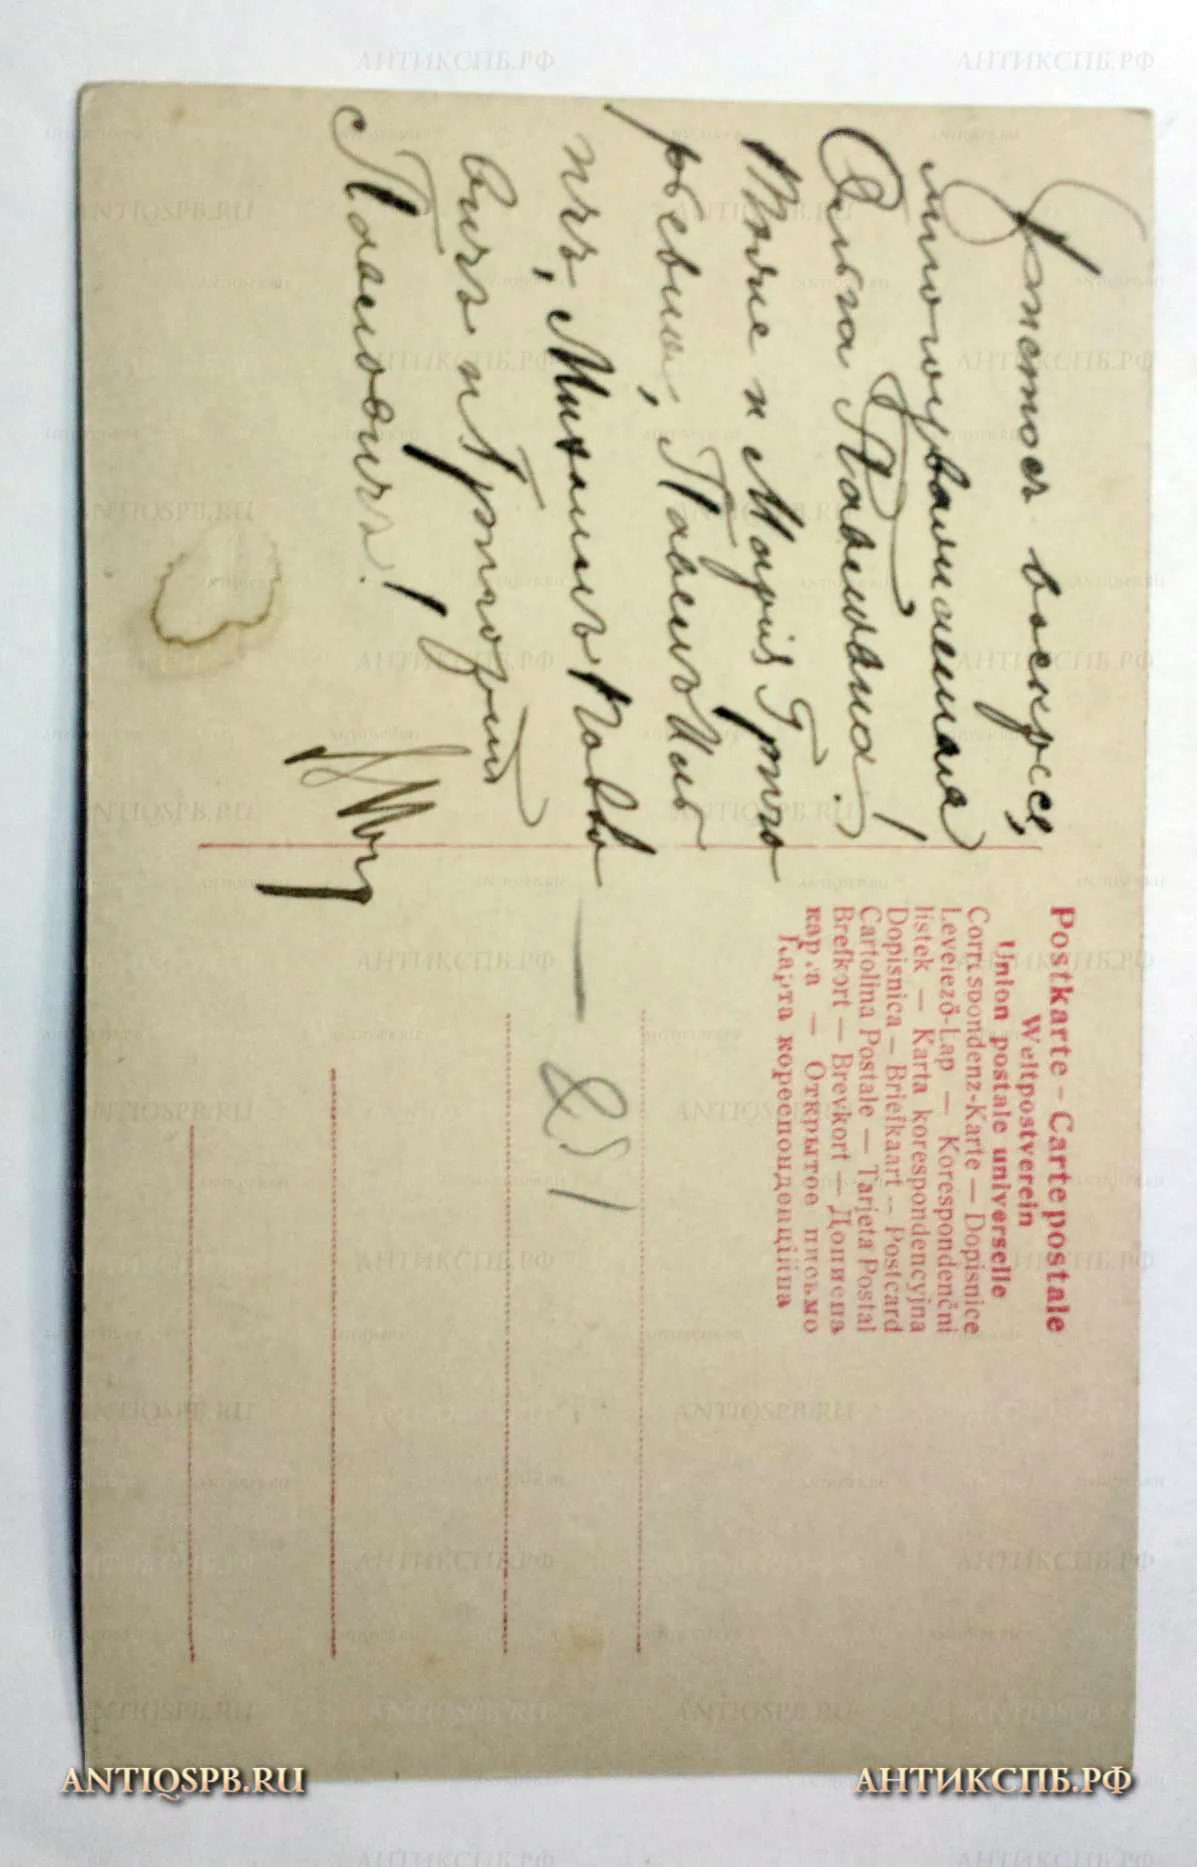 Христосъ воскресе,
многоуважаемая
Ольга Павловна!
Также и Марія Григо
рьевна, Павелъ Иль
ичъ, Михаилъ Павло
вичъ и Григорій
Павловичъ!
Postkarte – Carte postale
Weltpostverein
Union postale universelle
Correspondenz-Karte — Dopisnice
Levelező-Lap — Korespondenční
lístek — Karta korespondencyjna
Dopisnica — Briefkaart — Postcard
Cartolina Postale — Tarjeta Postal
Brefkort — Brevkort — Дописна
карта — Открытое письмо
Карта кореспонденційна
ANTIQSPB.RU
АНТИКСПБ.РФ